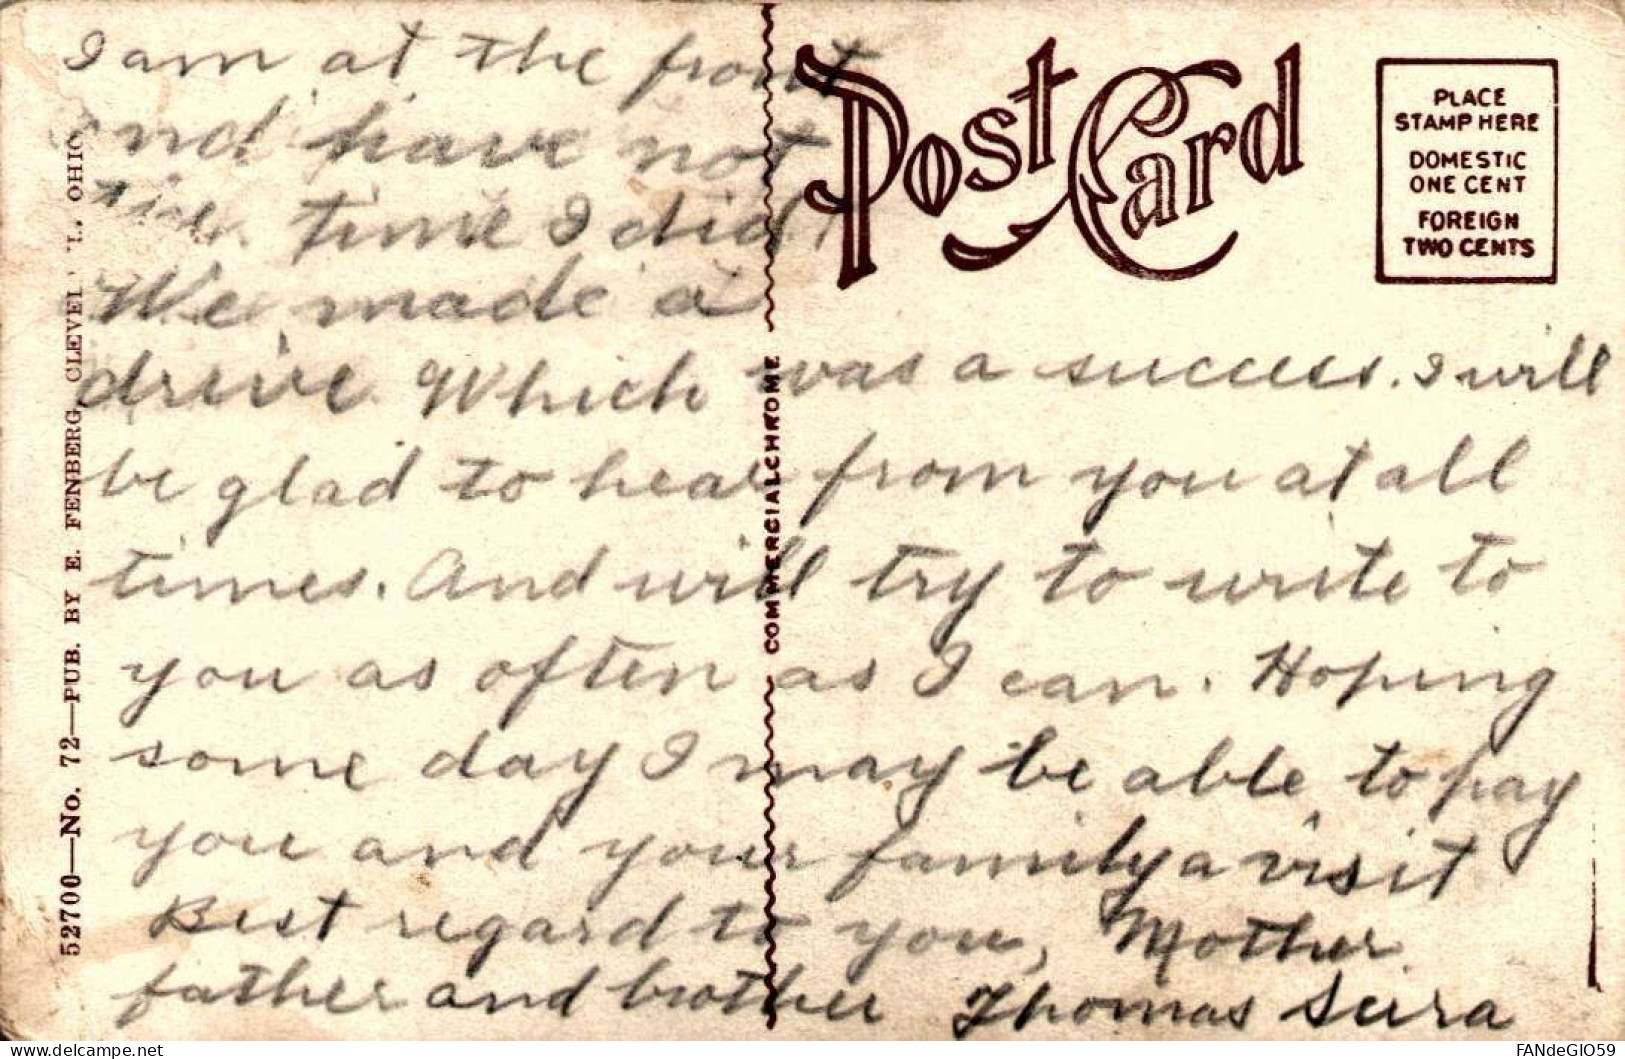 I am at the front
and have not
time I did
We made a
drive Which was a success. I will
be glad to hear from you at all
times. And will try to write to
you as often as I can. Hoping
some day I may be able to pay
you and your family a visit
Best regard to you, Mother
father and brother Thomas
Post Card
PLACE
STAMP HERE
DOMESTIC
ONE CENT
FOREIGN
TWO CENTS
COMMERCIALCHROME
52700—No. 72—PUB. BY E. FENBERG, OHIO
FANdeGIO59